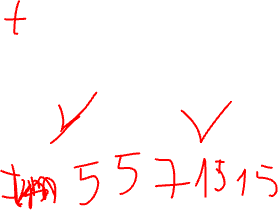 +
5 5 7 15 15